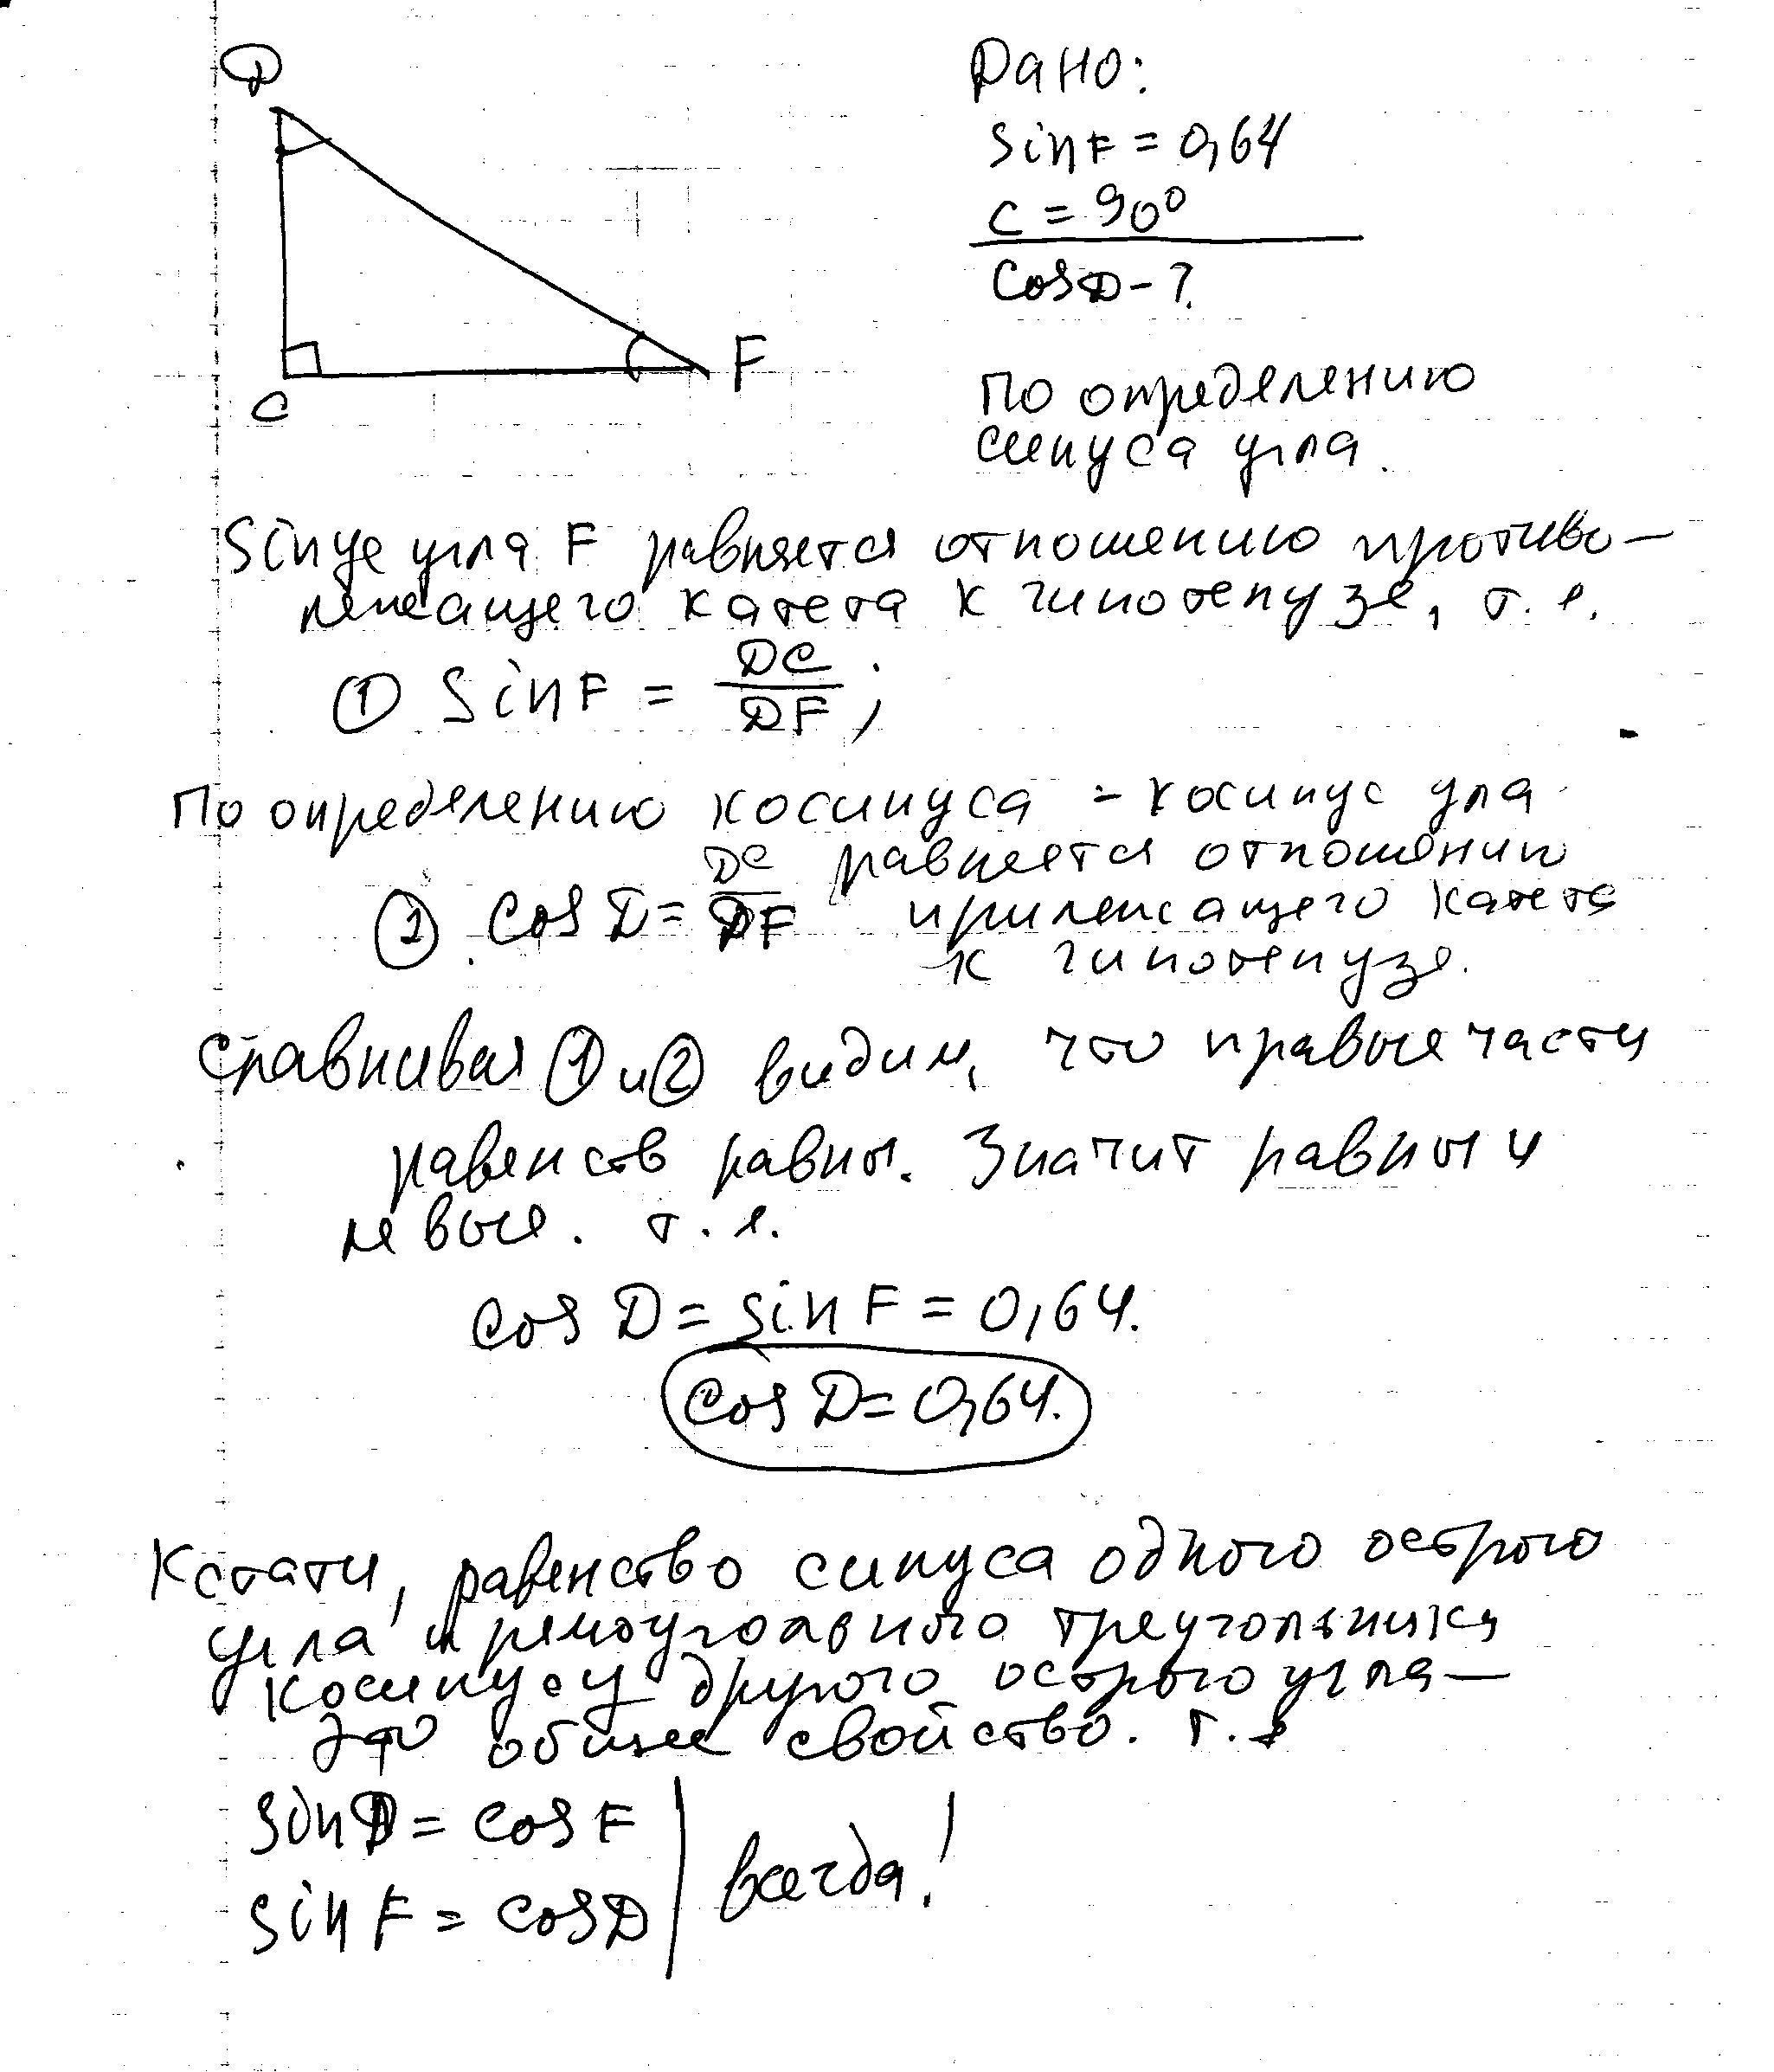 D
C
F
Дано:
sin F = 0,64
C = 90°
cos D - ?
По определению
синуса угла.
Sinус угла F равняется отношению противо-
лежащего катета к гипотенузе, т. е.
① sin F = DC/DF;
По определению косинуса - косинус угла
равняется отношению
② cos D = DC/DF прилежащего катета
к гипотенузе.
Сравнивая ① и ② видим, что правые части
равенств равны. Значит равны и
левые. т. е.
cos D = sin F = 0,64.
cos D = 0,64.
Кстати, равенство синуса одного острого
угла прямоугольного треугольника
косинусу другого острого угла -
это общее свойство. т. е
sin D = cos F
sin F = cos D
всегда!